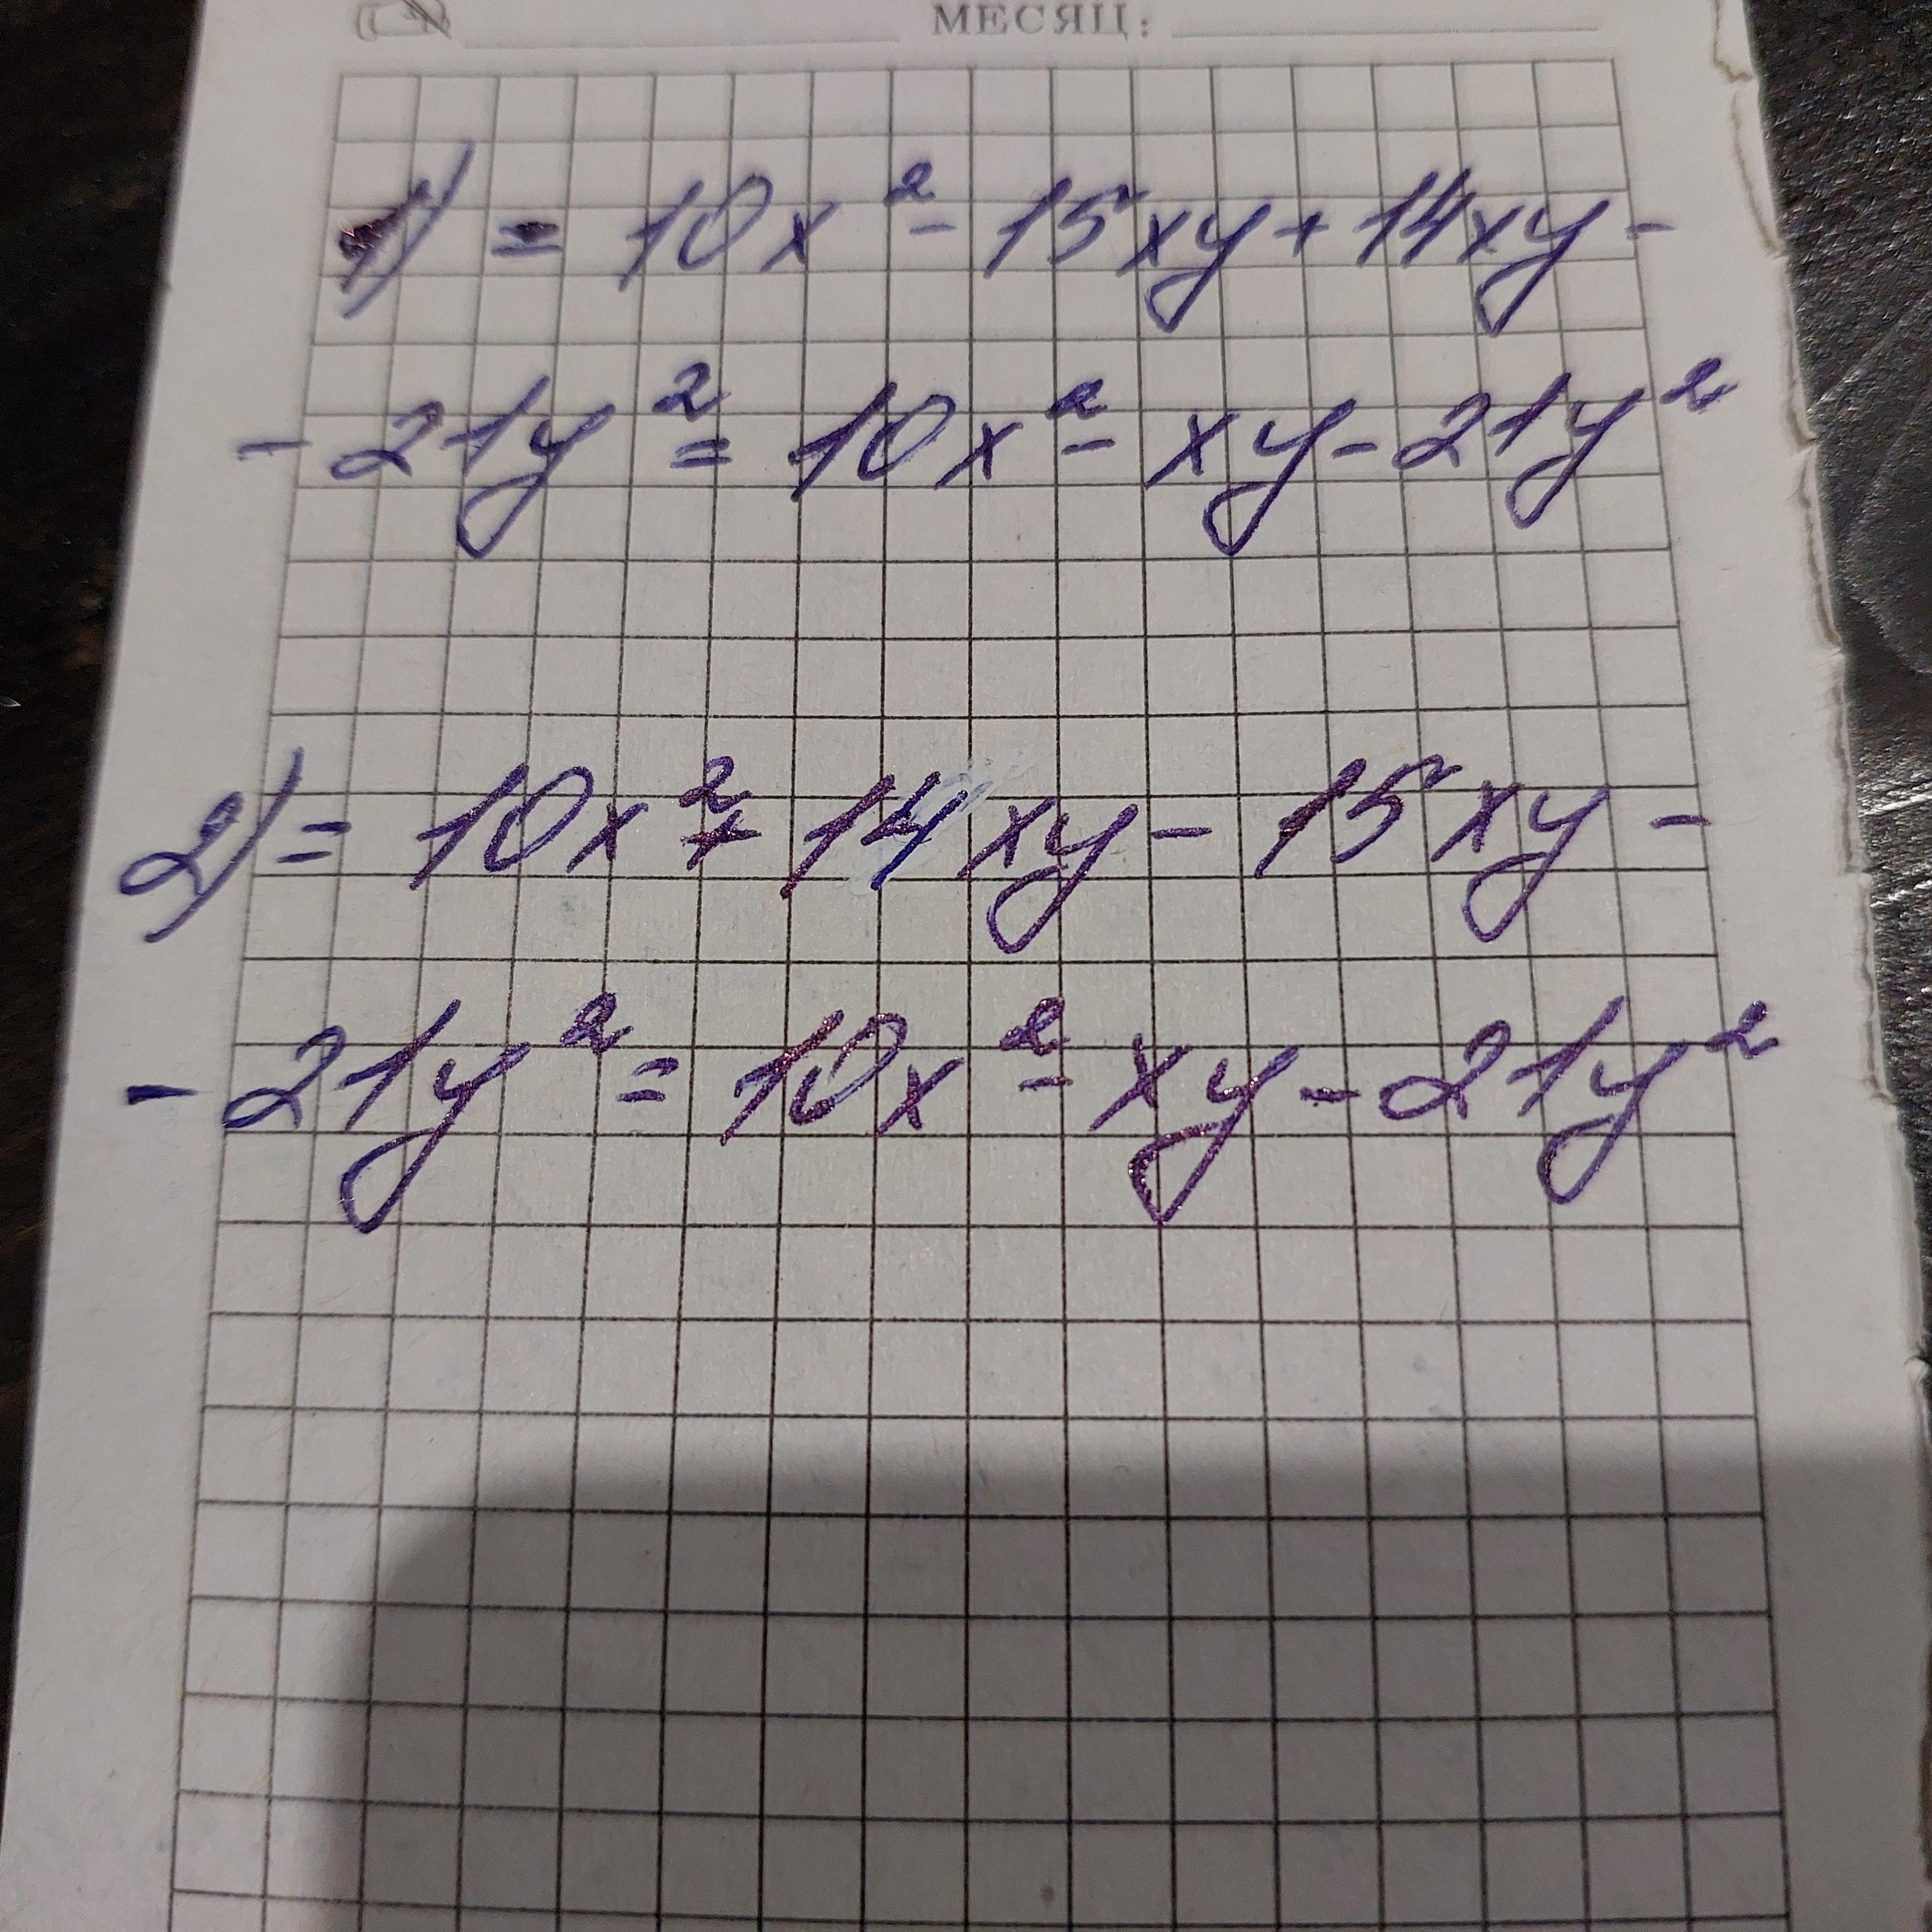 МЕСЯЦ:
1) = 10x² - 15xy + 14xy -
- 21y² = 10x² - xy - 21y²
2) = 10x² + 14xy - 15xy -
- 21y² = 10x² - xy - 21y²